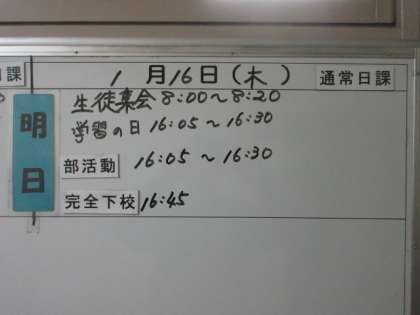 日課
1月16日(木) 通常日課
明日
生徒集会 8:00〜8:20
学習の日 16:05〜16:30
部活動 16:05〜16:30
完全下校 16:45